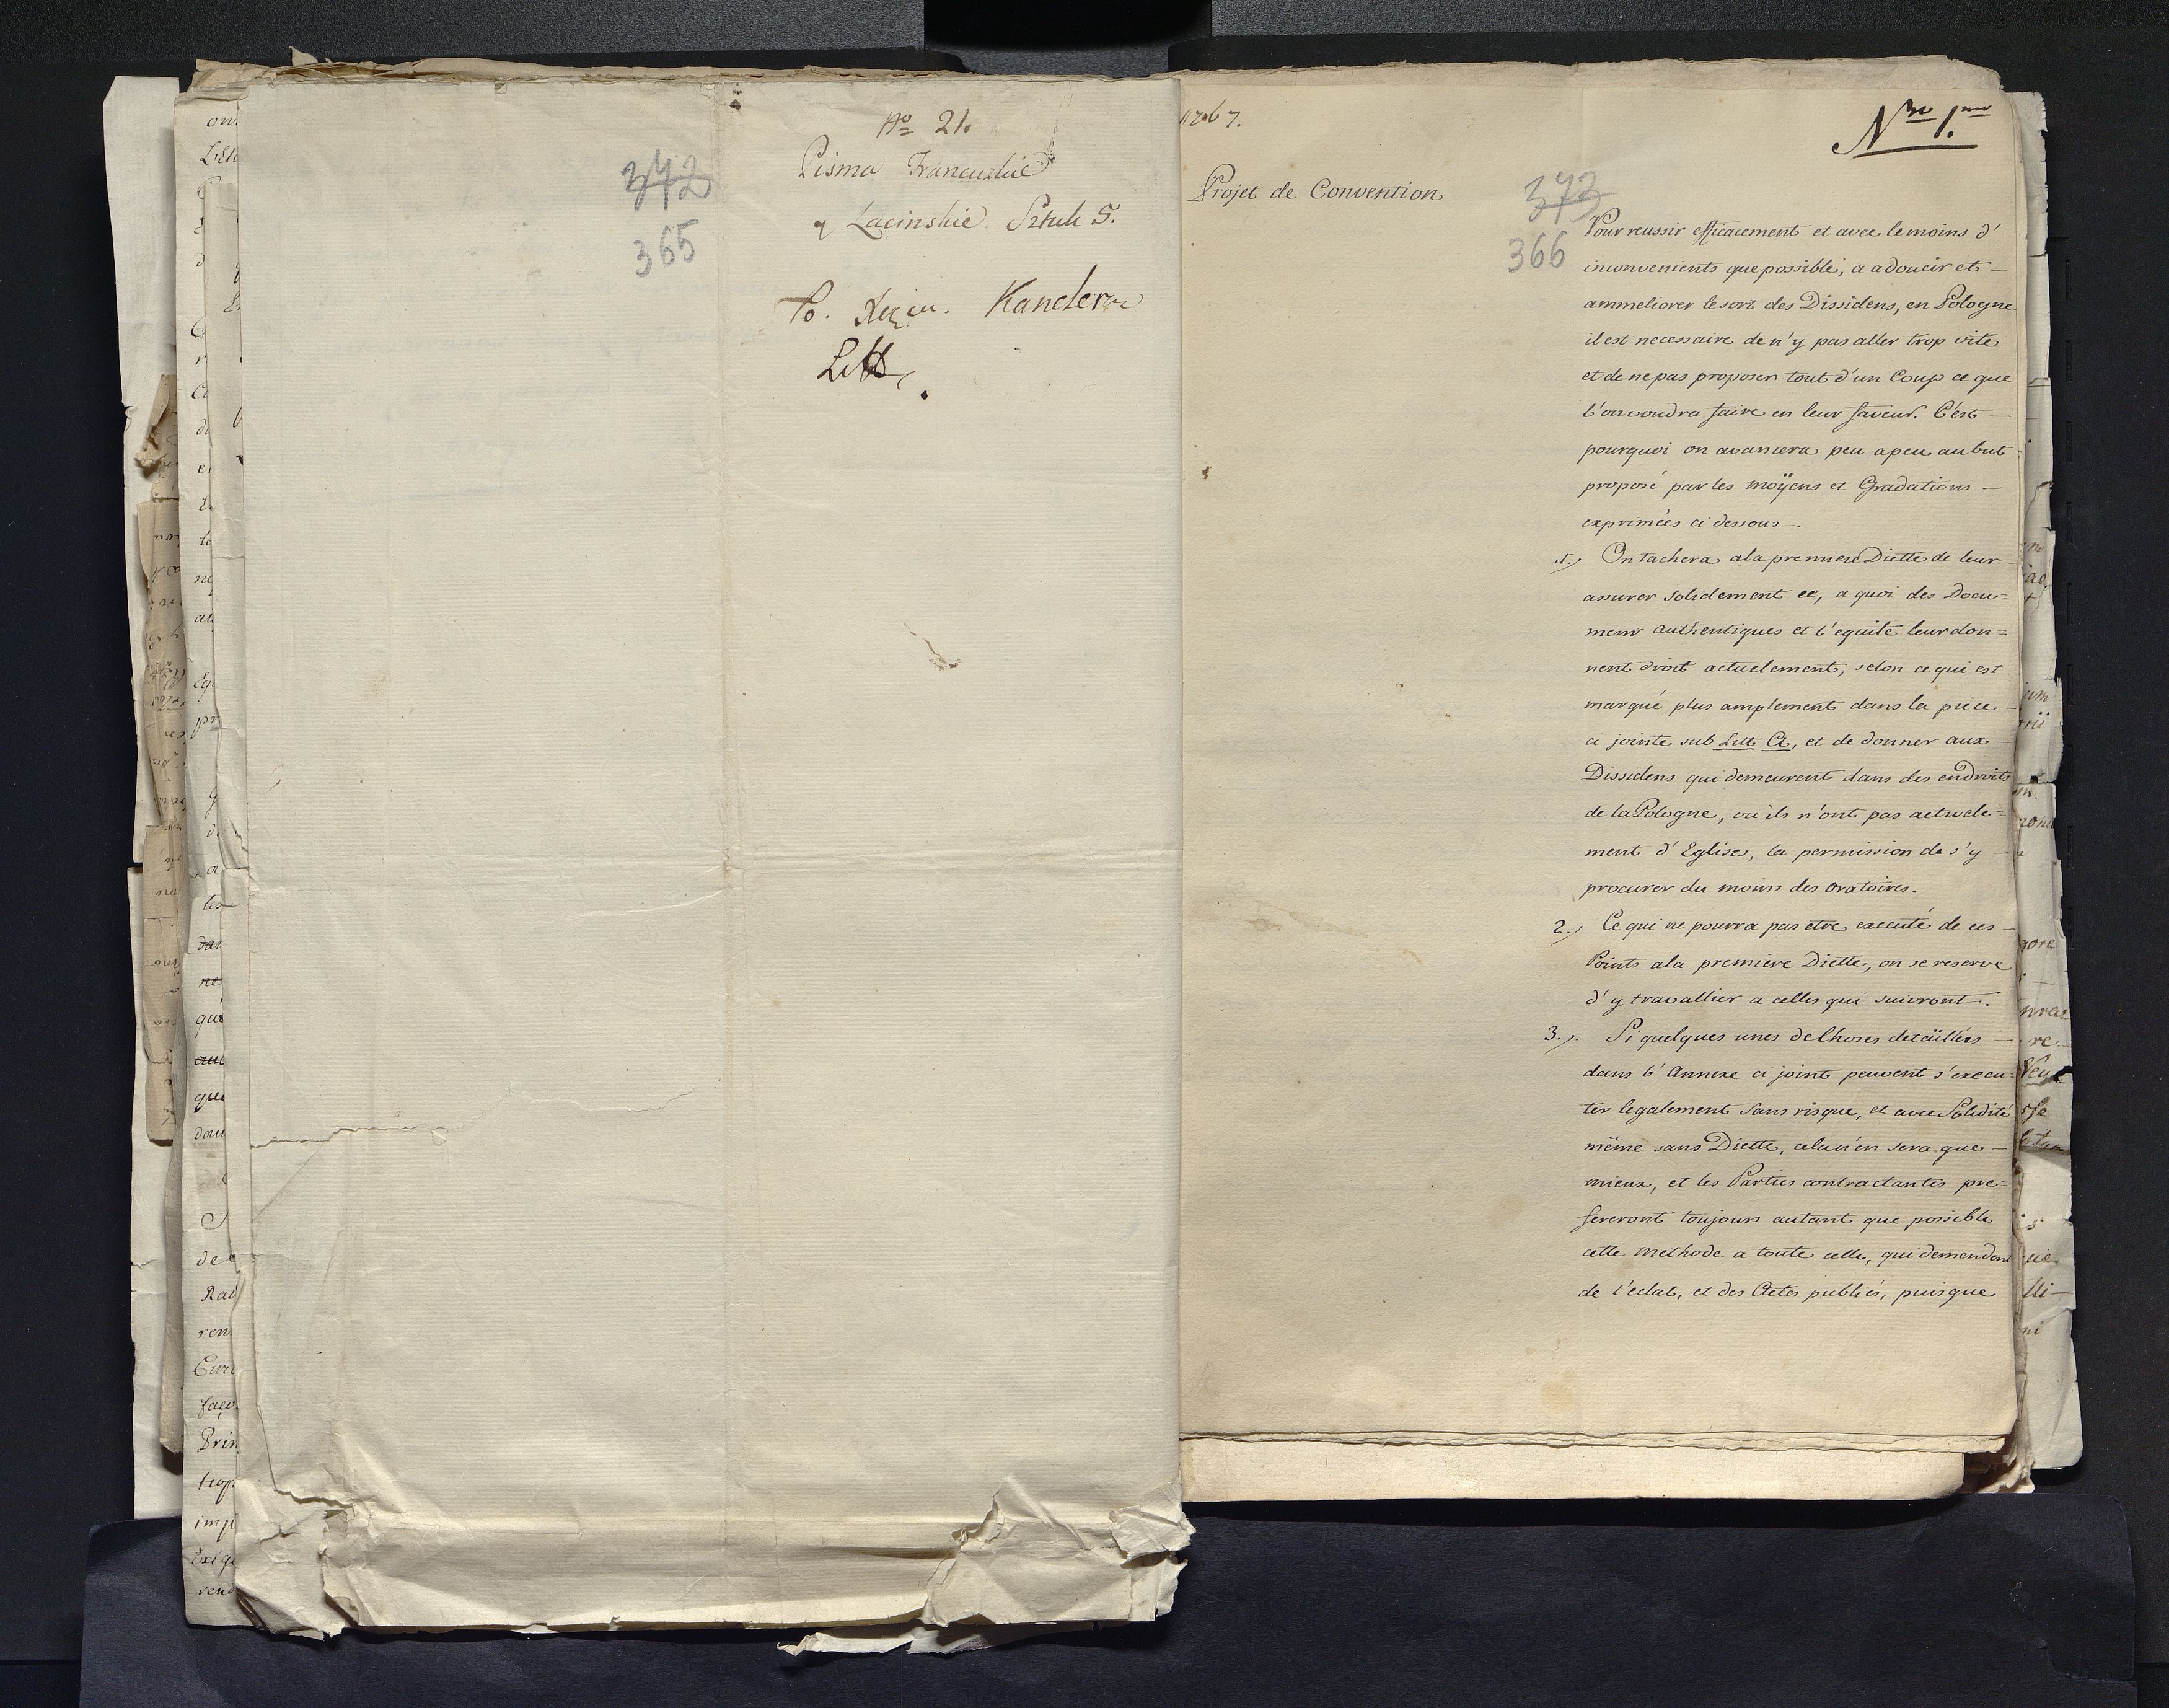 No 21.
Pisma Francuzkie
y Lacinskie Sztuk 5.
372
365
Kanclerza
Litt.
1767.
Nro 1mo
Projet de Convention
373
366
Pour reussir efficacement et avec le moins d'
inconvenients que possible, a adoucir et
ammeliorer le sort des Dissidens, en Pologne
il est necessaire de n'y pas aller trop vite
et de ne pas proposer tout d'un Coup ce que
l'on voudra faire en leur faveur. C'est
pourquoi on avancera peu a peu au but
proposé par les moÿens et Gradations
exprimées ci dessous.
1.) On tachera a la premiere Diette de leur
assurer solidement ce, a quoi des Docu=
mens authentiques et l'equité leur don=
nent droit actuelement, selon ce qui est
marqué plus amplement dans la piece
ci jointe sub Litt A, et de donner aux
Dissidens qui demeurent dans des endroits
de la Pologne, où ils n'ont pas actuele=
ment d'Eglises, la permission de s'y
procurer du moins des Oratoires.
2.) Ce qui ne pourra pas etre executé de ces
Points a la premiere Diette, on se reserve
d'y travallier a celles qui suivront.
3.) Si quelques unes de Choses detaïllées
dans l'Annexe ci joint peuvent s'execu=
ter legalement sans risque, et avec Solidité
même sans Diette, cela n'en sera que
mieux, et les Parties contractantes pre=
fereront toujours autant que possible
cette methode a toute celle, qui demendent
de l'eclat, et des Actes publics, puisque